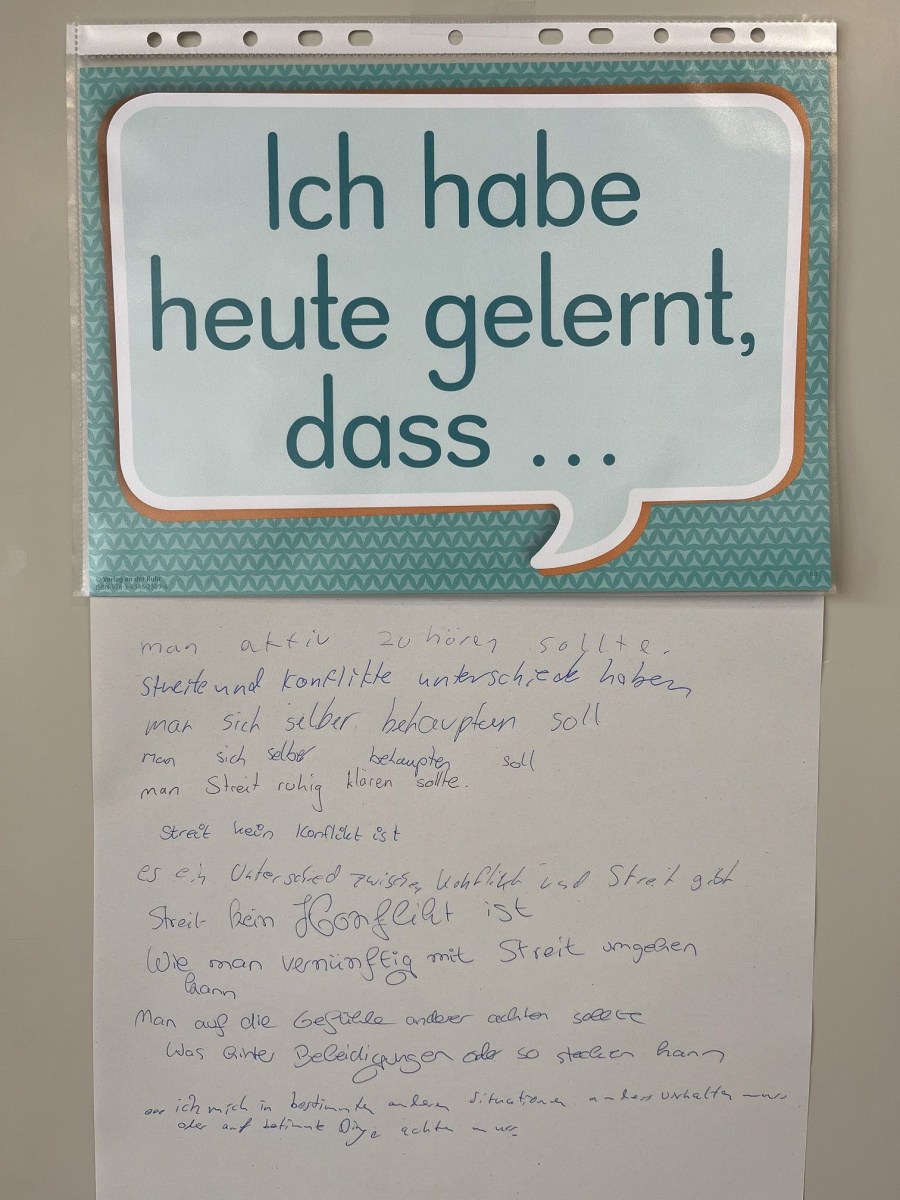 Ich habe
heute gelernt,
dass ...
© Verlag an der Ruhr
man aktiv zuhören sollte.
Streite und Konflikte unterschiede haben
man sich selber behaupten soll
man sich selber behaupten soll
man Streit ruhig klären sollte.
Streit kein Konflikt ist
es ein Unterschied zwischen Konflikt und Streit gibt
Streit kein Konflikt ist
Wie man vernünftig mit Streit umgehen
kann
Man auf die Gefühle anderer achten sollte
Was hinter Beleidigungen oder so stecken kann
ich mich in bestimmten anderen Situationen anders verhalten muss
oder auf bestimmte Dinge achten muss